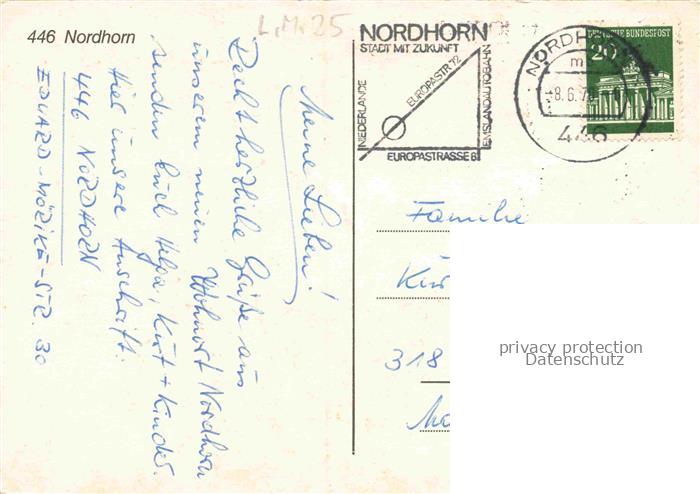 446 Nordhorn
L.M. 25
NORDHORN
STADT MIT ZUKUNFT
NIEDERLANDE
EUROPASTR. 72
EMSLANDAUTOBAHN
EUROPASTRASSE 8
NORDHORN
-8.6.7
446
DEUTSCHE BUNDESPOST
20
Meine Lieben!
Recht herzliche Grüße aus
unserem neuen Wohnort Nordhorn
senden Euch Helga, Kurt + Kinder.
Hier unsere Anschrift.
446 NORDHORN
EDUARD-MÖRIKE-STR. 30
Familie
318
privacy protection
Datenschutz